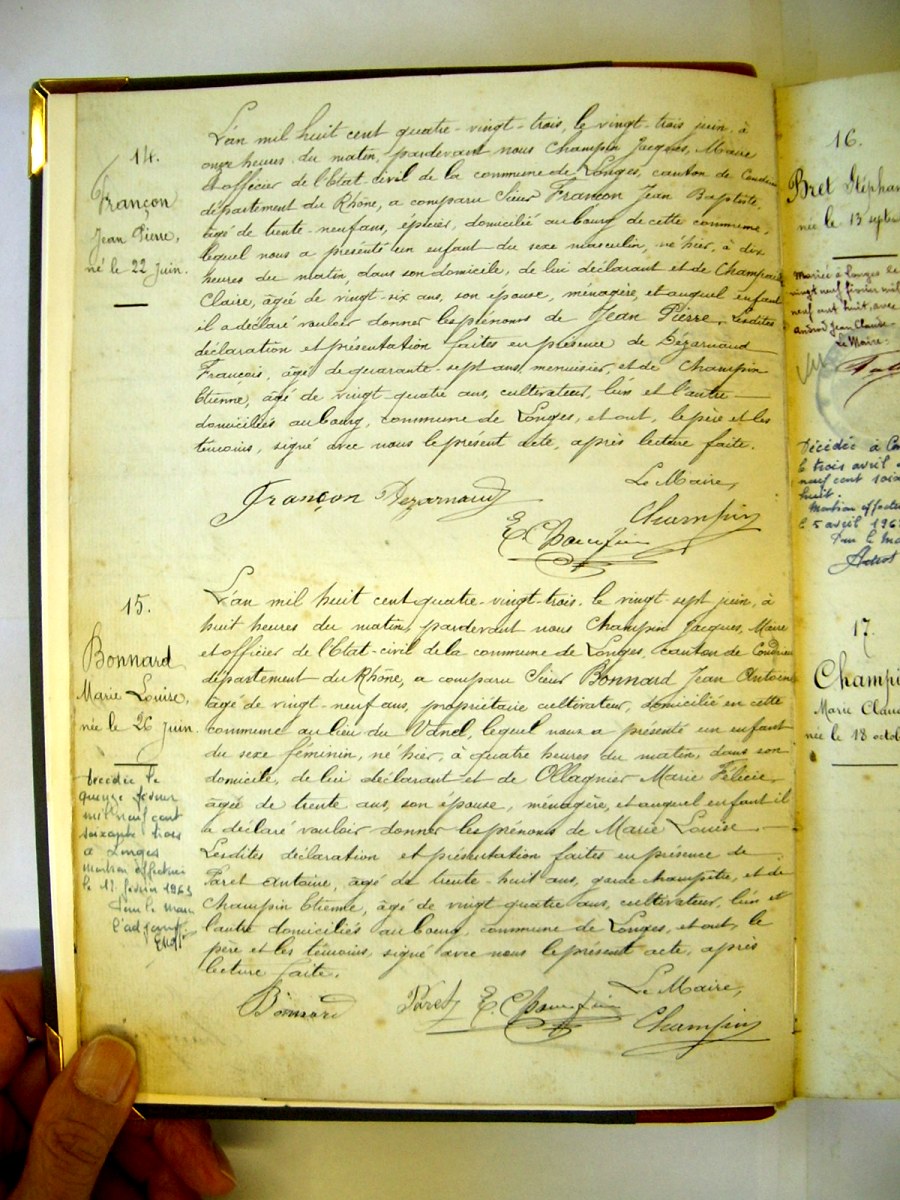 14.
Françon
Jean Pierre,
né le 22 juin.
L'an mil huit cent quatre-vingt-trois, le vingt-trois juin, à
onze heures du matin, pardevant nous Champin Jacques, Maire
et officier de l'Etat civil de la commune de Longes, canton de Condrieu
département du Rhône, a comparu Sieur Françon Jean Baptiste,
âgé de trente-neuf ans, épicier, domicilié au bourg de cette commune,
lequel nous a présenté un enfant du sexe masculin, né hier, à dix
heures du matin, dans son domicile, de lui déclarant et de
Claire, âgée de vingt-six ans, son épouse, ménagère, et auquel enfant
il a déclaré vouloir donner les prénoms de Jean Pierre. Lesdites
déclaration et présentation faites en présence de Dézarnaud
François, âgé de quarante-sept ans, menuisier, et de Champin
Etienne, âgé de vingt-quatre ans, cultivateur, l'un et l'autre
domiciliés au bourg, commune de Longes, et ont, le père et les
témoins, signé avec nous le présent acte, après lecture faite.
Le Maire,
Françon Dezarnaud
Champin
E. Champin
15.
Bonnard
Marie Louise,
née le 26 juin.
L'an mil huit cent quatre-vingt-trois, le vingt-sept juin, à
huit heures du matin, pardevant nous Champin Jacques, Maire
et officier de l'Etat-civil de la commune de Longes, canton de Condrieu
département du Rhône, a comparu Sieur Bonnard Jean Antoine
âgé de vingt-neuf ans, propriétaire cultivateur, domicilié en cette
commune au lieu du Vanel, lequel nous a présenté un enfant
du sexe féminin, né hier, à quatre heures du matin, dans son
domicile, de lui déclarant et de Ollagnier Marie Félicie,
âgée de trente ans, son épouse, ménagère, et auquel enfant il
a déclaré vouloir donner les prénoms de Marie Louise.
Lesdites déclaration et présentation faites en présence de
Paret Antoine, âgé de trente-huit ans, garde champêtre, et de
Champin Etienne, âgé de vingt-quatre ans, cultivateur, l'un et
l'autre domiciliés au bourg, commune de Longes, et ont, le
père et les témoins, signé avec nous le présent acte, après
lecture faite.
Le Maire,
Bonnard Paret E. Champin
Champin
Décédée le
quinze février
mil neuf cent
soixante trois
à Longes
mention effectuée
le 17 février 1963
Pour le maire
l'adjoint
16.
Bret Stéphan
née le 13 septem
Mariée à Longes le
vingt neuf février mil
neuf cent huit, avec
André Jean Claude
Le Maire.
Décédée à Co
le trois avril
neuf cent soix
huit.
Mention effectu
le 5 avril 196
Pour le Ma
17.
Champi
Marie Claud
née le 18 octob